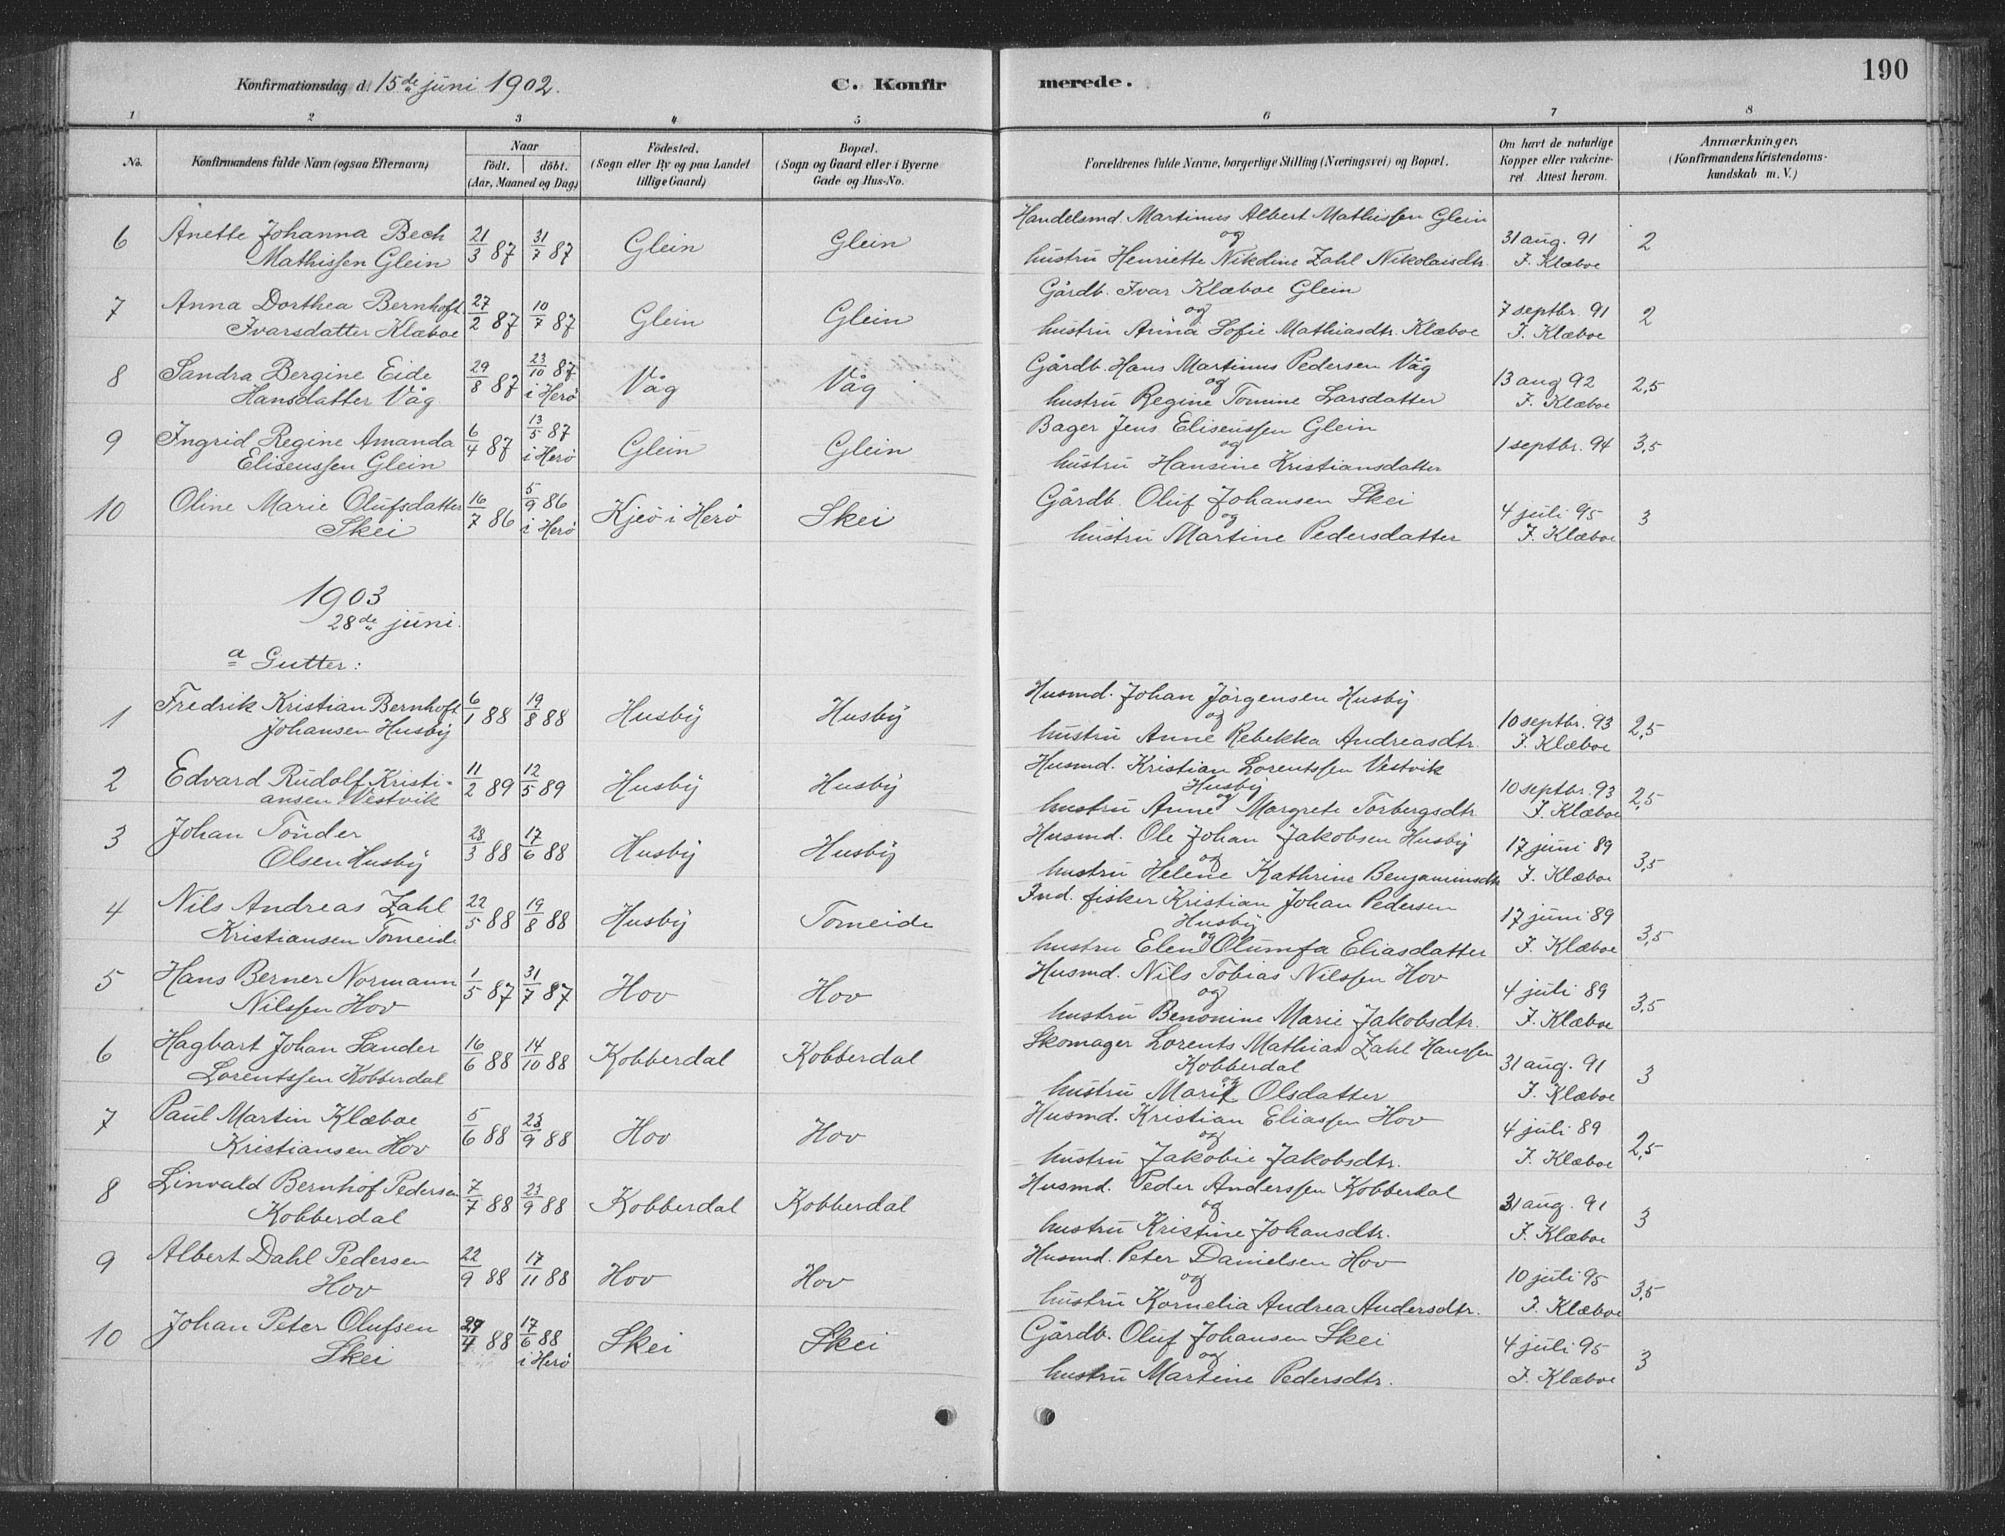 Konfirmationsdag d. 15de juni 1902.
C. Konfirmerede.
190
1 2 3 4 5 6 7 8
No.
Konfirmandens fulde Navn (ogsaa Efternavn)
Naar
födt. döbt.
(Aar, Maaned og Dag)
Födested.
(Sogn eller By og paa Landet
tillige Gaard)
Bopæl.
(Sogn og Gaard eller i Byerne
Gade og Hus-No.
Forældrenes fulde Navne, borgerlige Stilling (Næringsvei) og Bopæl.
Om havt de naturlige
Kopper eller vakcine-
ret Attest herom.
Anmærkninger.
(Konfirmandens Kristendoms-
kundskab m. V.)
6 Anette Johanna Bech 21/3 87 31/7 87 Glein Glein Handelsmd. Martinus Albert Mathissen Glein 31 aug. 91 2
Mathissen Glein og
hustru Henriette Nikoline Zahl Nikolaisdtr. J. Klæboe
7 Anna Dorthea Bernhoft 27/2 87 10/7 87 Glein Glein Gårdb. Ivar Klæboe Glein 7 septbr. 91 2
Ivarsdatter Klæboe og
hustru Anna Sofie Mathiasdtr. Klæboe J. Klæboe
8 Sandra Bergine Eide 29/8 87 23/10 87 i Herö Våg Våg Gårdb. Hans Martinus Pedersen Våg 13 aug 92 2,5
Hansdatter Våg og
hustru Regine Tomine Larsdatter J. Klæboe
9 Ingrid Regine Amanda 6/4 87 13/5 87 i Herö Glein Glein Bager Jens Eliseussen Glein 1 septbr. 94 3,5
Eliseussen Glein og
hustru Hansine Kristiansdatter
10 Oline Marie Olufsdatter 16/7 86 5/9 86 i Herö Kjeö i Herö Skei Gårdb. Oluf Johansen Skei 4 juli 95 3
Skei og
hustru Martine Pedersdatter J. Klæboe
1903
28de juni.
a Gutter:
1 Fredrik Kristian Bernhoft 6/1 88 19/8 88 Husby Husby Husmd. Johan Jörgensen Husby 10 septbr. 93 2,5
Johansen Husby og
hustru Anne Rebekka Andreasdtr. J. Klæboe
2 Edvard Rudolf Kristi- 11/2 89 12/5 89 Husby Husby Husmd. Kristian Lorentssen Vestvik 10 septbr. 93 2,5
ansen Vestvik Husby
og
hustru Anne Margrete Torbergsdtr J. Klæboe
3 Johan Tönder 28/3 88 17/6 88 Husby Husby Husmd. Ole Johan Jakobsen Husby 17 juni 89 3,5
Olsen Husby og
hustru Helene Kathrine Benjaminsdtr J. Klæboe
4 Nils Andreas Zahl 22/5 88 19/8 88 Husby Tomeide Ind. fisker Kristian Johan Pedersen 17 juni 89 3,5
Kristiansen Tomeide Husby
og
hustru Elen Olumfa Eliasdatter J. Klæboe
5 Hans Berner Normann 1/5 87 31/7 87 Hov Hov Husmd. Nils Tobias Nilssen Hov 4 juli 89 3,5
Nilssen Hov og
hustru Benonine Marie Jakobsdtr. J. Klæboe
6 Hagbart Johan Sander 16/6 88 14/10 88 Kobberdal Kobberdal Skomager Lorents Mathias Zahl Hanssen 31 aug. 91 3
Lorentssen Kobberdal Kobberdal
og
hustru Marie Olsdatter J. Klæboe
7 Paul Martin Klæboe 5/6 88 23/9 88 Hov Hov Husmd. Kristian Eliassen Hov 4 juli 89 2,5
Kristiansen Hov og
hustru Jakobie Jakobsdtr. J. Klæboe
8 Linvald Bernhof Pedersen 7/7 88 23/9 88 Kobberdal Kobberdal Husmd. Peder Anderssen Kobberdal 31 aug. 91 3
Kobberdal og
hustru Kristine Johansdtr. J. Klæboe
9 Albert Dahl Pedersen 22/9 88 17/11 88 Hov Hov Husmd. Peter Danielsen Hov 10 juli 95 3,5
Hov og
hustru Kornelia Andrea Andersdtr. J. Klæboe
10 Johan Peter Olufsen /4 88 17/6 88 i Herö Skei Skei Gårdb. Oluf Johansen Skei 4 juli 95 3
Skei og
hustru Martine Pedersdtr. J. Klæboe